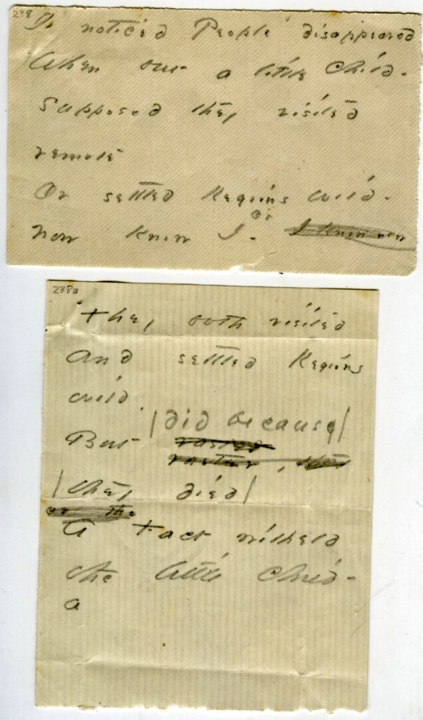 238
I noticed People disappeared
When but a little child -
Supposed they visited
remote
Or settled Regions wild -
or
Now know I - I know now
238a
they both visited
and settled Regions
wild
|did because|
But
|they died|
A Fact witheld
the little child -
a